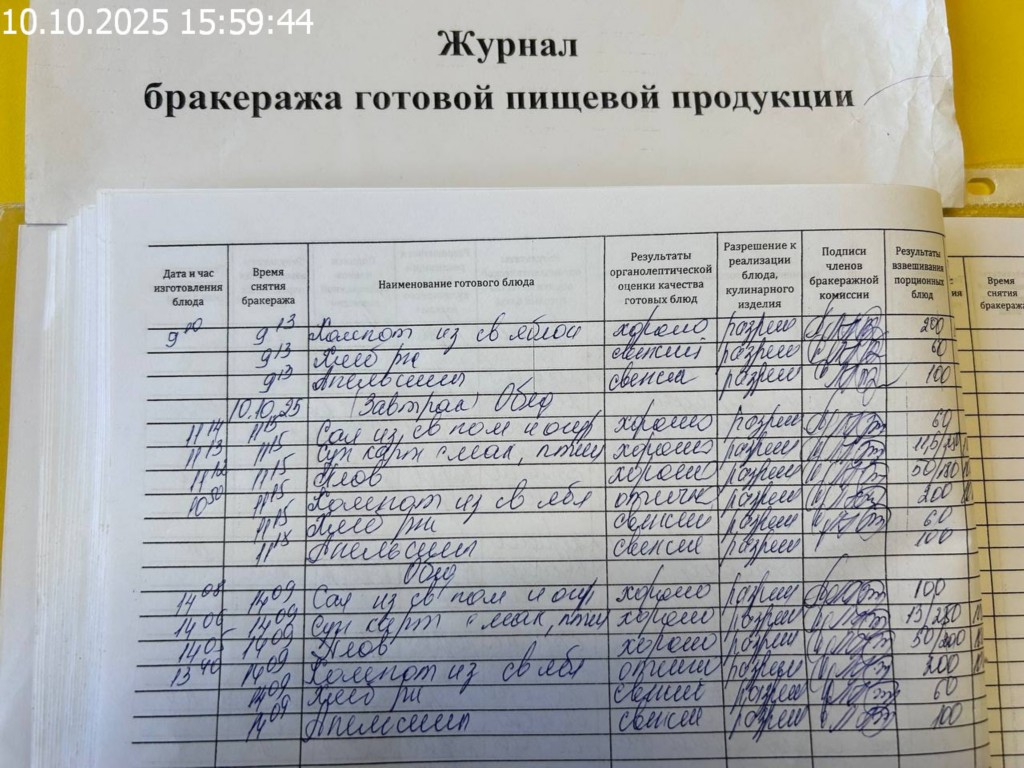 10.10.2025 15:59:44
Журнал
бракеража готовой пищевой продукции
Дата и час изготовления блюда Время снятия бракеража Наименование готового блюда Результаты органолептической оценки качества готовых блюд Разрешение к реализации блюда, кулинарного изделия Подписи членов бракеражной комиссии Результаты взвешивания порционных блюд Время снятия бракеража
9 10 9 13 Компот из св яблок хорошо разреш 200
9 13 Хлеб рж свежий разреш 60
9 13 Апельсины свежие разреш 100
10.10.25 (Завтрак) Обед
11 14 11 15 Сал из св пом и огур хорошо разреш 60
11 13 11 15 Суп карт с мак, птиц хорошо разреш
11 12 11 15 Плов хорошо разреш
10 50 11 15 Компот из св ябл отличн разреш 200
11 15 Хлеб рж свежий разреш 60
11 15 Апельсины свежие разреш 100
Обед
14 08 14 09 Сал из св пом и огур хорошо разреш 100
14 06 14 09 Суп карт с мак, птиц хорошо разреш
14 05 14 09 Плов хорошо разреш
13 40 14 09 Компот из св ябл отличн разреш 200
14 09 Хлеб рж свежий разреш 60
14 09 Апельсины свежие разреш 100